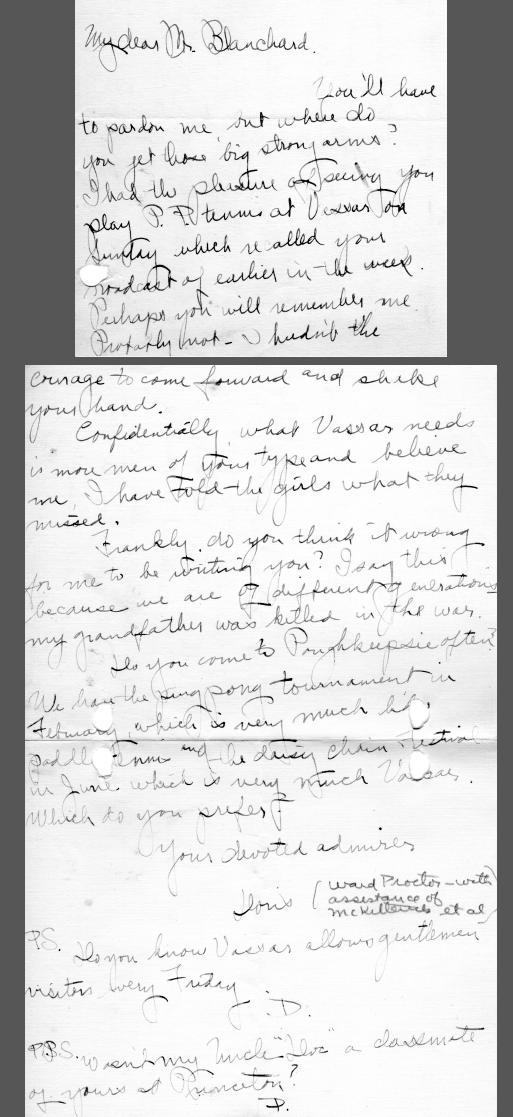 My dear Mr. Blanchard.
You'll have
to pardon me, but where do
you get those big strong arms?
I had the pleasure of seeing you
play P. P. tennis at Vassar on
Sunday which recalled your
broadcast of earlier in the week.
Perhaps you will remember me.
Probably not - I hadn't the
courage to come forward and shake
your hand.
Confidentially, what Vassar needs
is more men of your type and believe
me, I have told the girls what they
missed.
Frankly, do you think it wrong
for me to be writing you? I say this
because we are of different generations
my grandfather was killed in the war.
Do you come to Poughkeepsie often?
We have the ping pong tournament in
February, which is very much like
paddle tennis and the daisy chain festival
in June which is very much Vassar.
Which do you prefer?
Your devoted admirer
Doris (Ward Proctor - with
assistance of
et al)
P.S. Do you know Vassar allows gentlemen
visitors every Friday
D.
P.P.S. Wasn't my Uncle "Doc" a classmate
of yours at Princeton?
D.